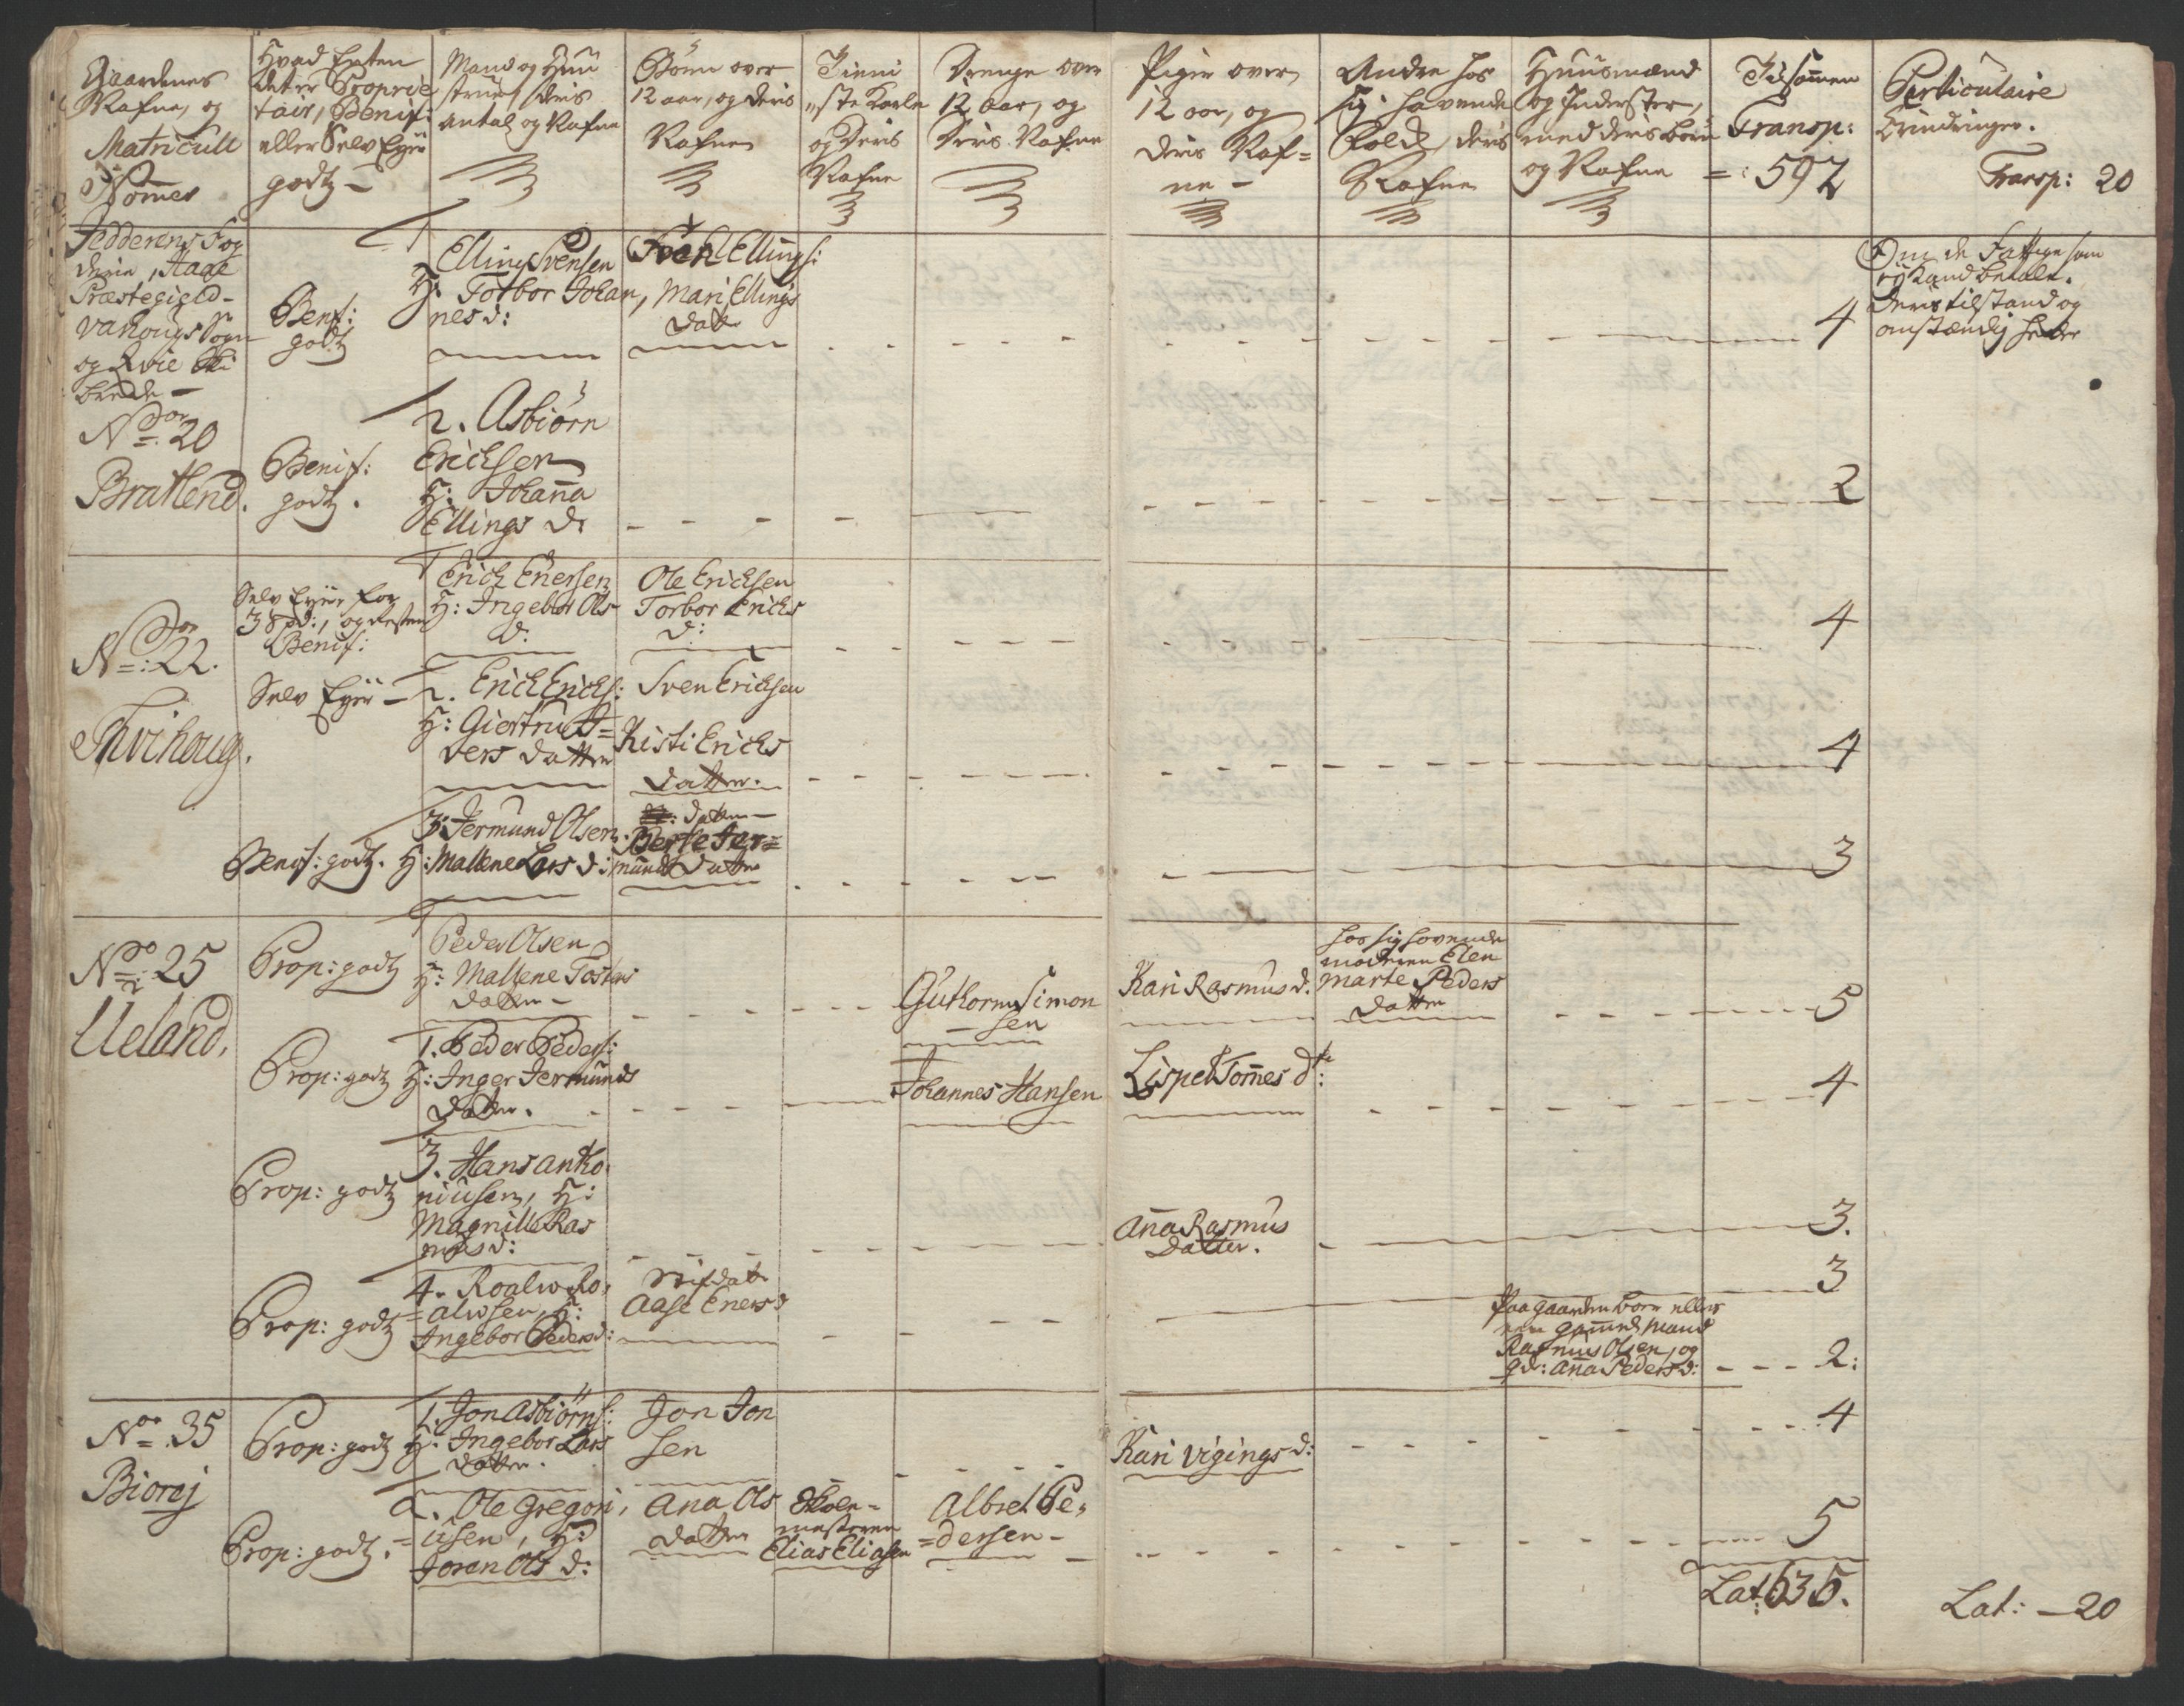 Gaardenes
Nafne, og
Matricull
Nommer
Hvad Enten
det er Proprie
tair, Benif:
eller Selv Eyer
godtz
Mand og Huu
struer, deris
antal og Nafne
Børn over
12 aar, og deris
Nafne
Tieni
ste Karle
og Deris
Nafne
Drenge over
12 aar, og
Deris Nafne
Piger over
12 aar, og
deris Naf=
ne -
Andre hos
sig havende
Folck, deris
Nafne
Huusmænd
og Inderster,
med deris børn
og Nafne
Tilsammen
Transp:
592
Particulaire
Erindringer.
Transp: 20
Jedderens Fog
derie, Haae
Præstegield
Varhougs Sogn
og Qvie Ski
brede
No 20
Bratlend.
Benf:
godtz
Elling Svensen
H: Torbor Johan
nesd:
Ellings:
Mari Ellings
datr
4
Om de Fattige som
ej kand betale.
deris tilstand og
omstændig heder
Benif:
godtz.
2. Asbiørn
Ericksen
H: Johanna
Ellings d:
2
No 22.
Tvihoug.
Selv Eyer for
3 Spd:, og Resten
Benif:
Erich Enersen
H: Ingebor Ols
d:
Ole Ericksen
Torbor Ericks
d:
4
Selv Eyer
2. Erich Ericks:
H: Giertru
vers datter
Sven Ericksen
Kisti Ericks
datter.
4
Benif: godtz.
3: Jermund Olsen.
H: Mallene Lars d:
datter
Berte Jer=
munds datter
3
No 25
Ueland.
Prop: godtz
Peder Olsen
H: Mallene Tostens
datter
Guthorm Simon
sen
Kari Rasmus d.
hos sig havende
moderen Elen
Marte Peders
datter
5
Prop: godtz
1. Peder Peders:
H: Inger Jermunds
datter.
Johannes Hansen
Lispet Tommes dtr:
4
Prop: godtz
3. Hans antho
niusen, H:
Magnille Ras
mus d:
Anna Rasmus
datter.
3.
Prop: godtz
4. Roalw Ro,
=alwsen, H:
Ingebor Peders d:
Stifdatr
Aase Eners d
3
Paa gaarden
gammel mand
Rasmus Olsen, og
qd: Anna Peders d:
2:
No 35
Biorej
Prop: godtz
1. Jon Asbiørns:
H: Ingebor Lars
datter.
Jon Jon
sen
Kari Vigings d:
4
Prop: godtz.
2. Ole Gregori,
=usen, H:
Joren Ols d:
Ana Ols
datter
Skole-
mesteren
Elias Eliasen
Albret Pe,
=dersen
5
Lat: 635.
Lat: 20